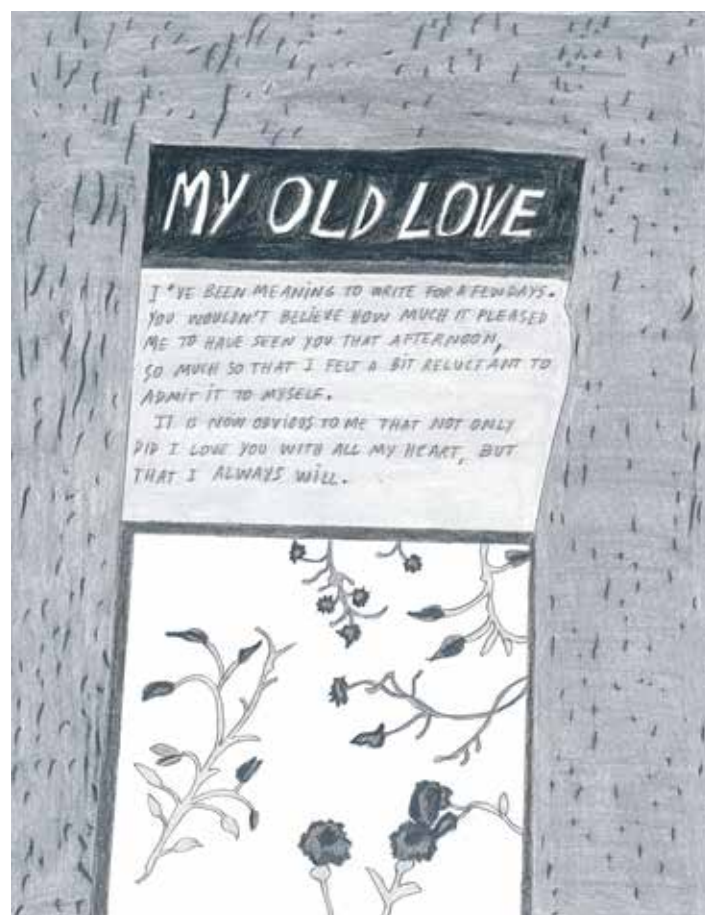 MY OLD LOVE
I'VE BEEN MEANING TO WRITE FOR A FEW DAYS.
YOU WOULDN'T BELIEVE HOW MUCH IT PLEASED
ME TO HAVE SEEN YOU THAT AFTERNOON,
SO MUCH SO THAT I FELT A BIT RELUCTANT TO
ADMIT IT TO MYSELF.
IT IS NOW OBVIOUS TO ME THAT NOT ONLY
DID I LOVE YOU WITH ALL MY HEART, BUT
THAT I ALWAYS WILL.